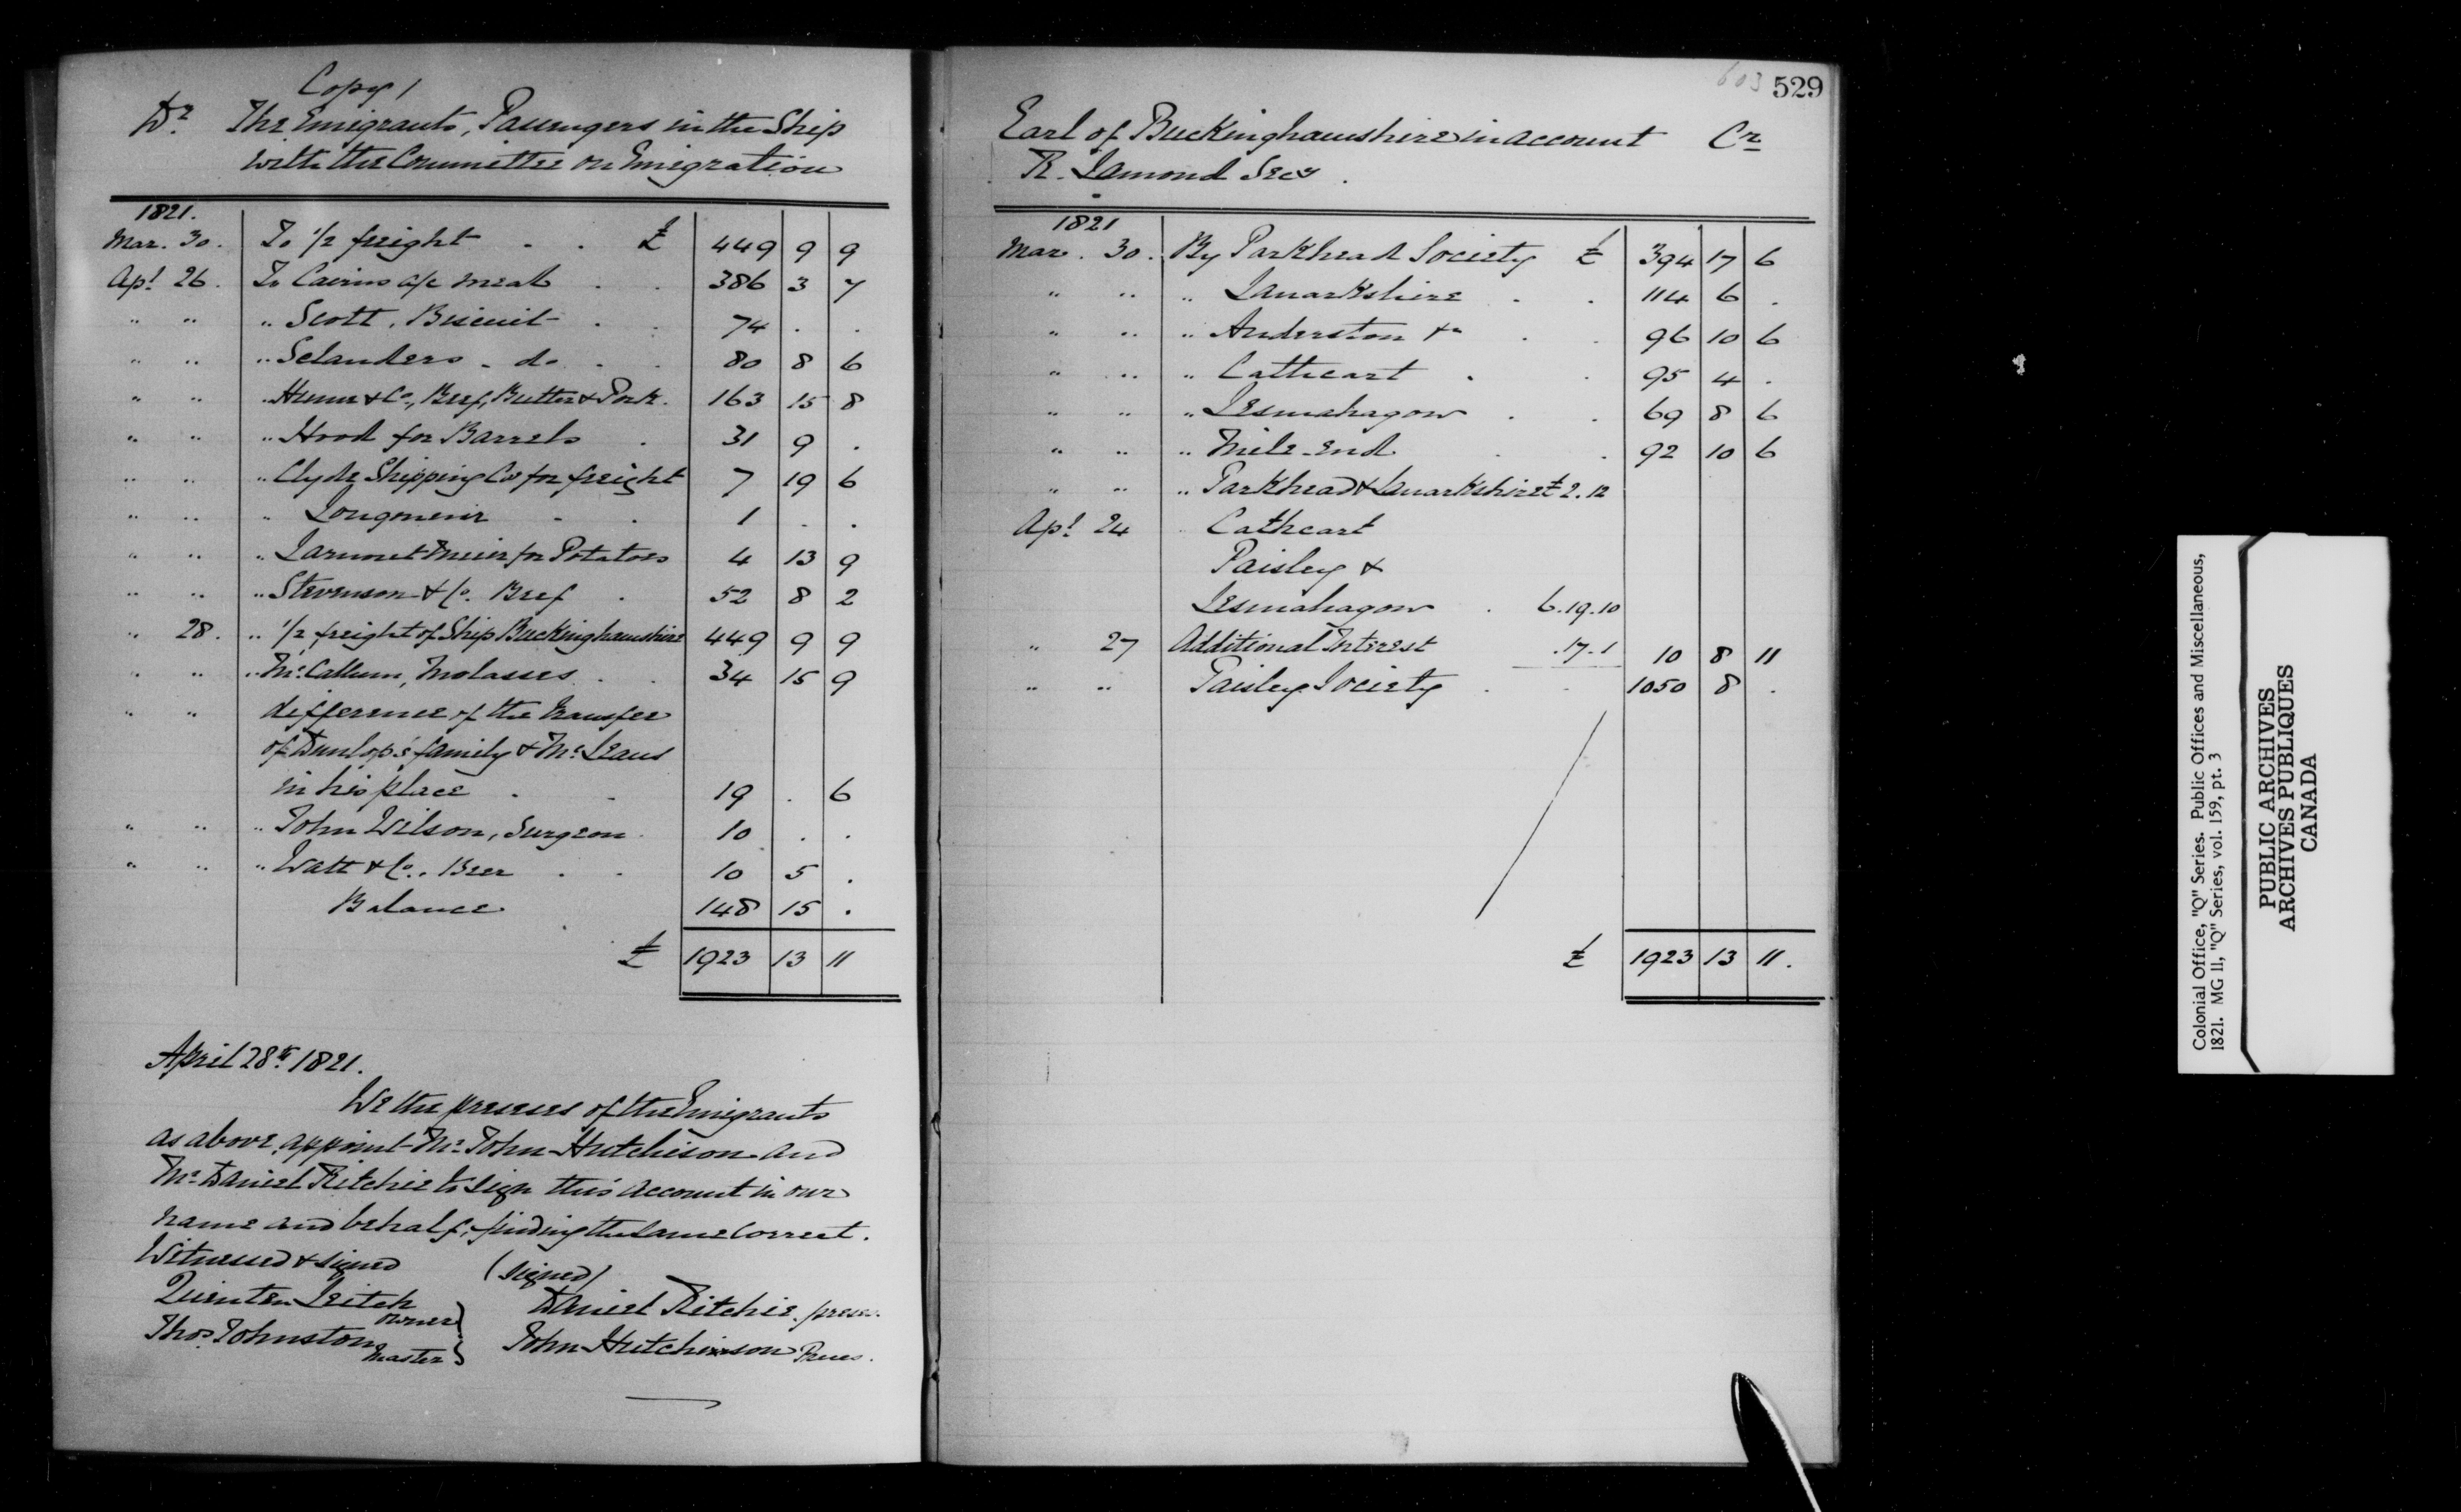 Copy/
Dr. The Emigrants, Passengers in the Ship
with the Committee on Emigration
1821.
Mar. 30. To 1/2 freight . . £ 449 9 9
Apl. 26. To Cairns a/c meal . . 386 3 7
" " " Scott, Biscuit . . 74 . .
" " " Selanders - do . . 80 8 6
" " " & Co., Beef, Butter & Pork. 163 15 8
" " " Hood for Barrels . 31 9 .
" " " Clyde Shipping Co for freight 7 19 6
" " " Longmuir . . 1 . .
" " " for Potatoes 4 13 9
" " " Stevenson & Co. Beef . 52 8 2
" 28. " 1/2 freight of Ship Buckinghamshire 449 9 9
" " " McCallum, Molasses . . 34 15 9
" " difference of the transfer
of Dunlop's family & McLeans
in his place . . 19 . 6
" " " John Wilson, Surgeon . 10 . .
" " " Watt & Co.. Beer . . 10 5 .
Balance 148 15 .
£ 1923 13 11
April 28th 1821.
We the preseses of the Emigrants
as above, appoint Mr. John Hutchison and
Mr. Daniel Ritchie to sign this account in our
name and behalf, finding the same correct.
Witnessed & signed (signed)
Quinten Leitch owner } Daniel Ritchie. preses.
Thos. Johnston master } John Hutchinson Preses.
603 529
Earl of Buckinghamshire in account Cr
R. Lamond Secy.
1821
Mar. 30. By Parkhead Society £ 394 17 6
" " " Lanarkshire . . 114 6 .
" " " Anderston & . . 96 10 6
" " " Cathcart . . 95 4 .
" " " Lesmahagow . . 69 8 6
" " " Mile-End . . 92 10 6
" " " Parkhead & Lanarkshire £2.12
Apl. 24 Cathcart
Paisley &
Lesmahagow . 6.19.10
" 27 Additional Interest .17.1 10 8 11
" " Paisley Society . . 1050 8 .
£ 1923 13 11.
Colonial Office, "Q" Series. Public Offices and Miscellaneous,
1821. MG 11, "Q" Series, vol. 159, pt. 3
PUBLIC ARCHIVES
ARCHIVES PUBLIQUES
CANADA